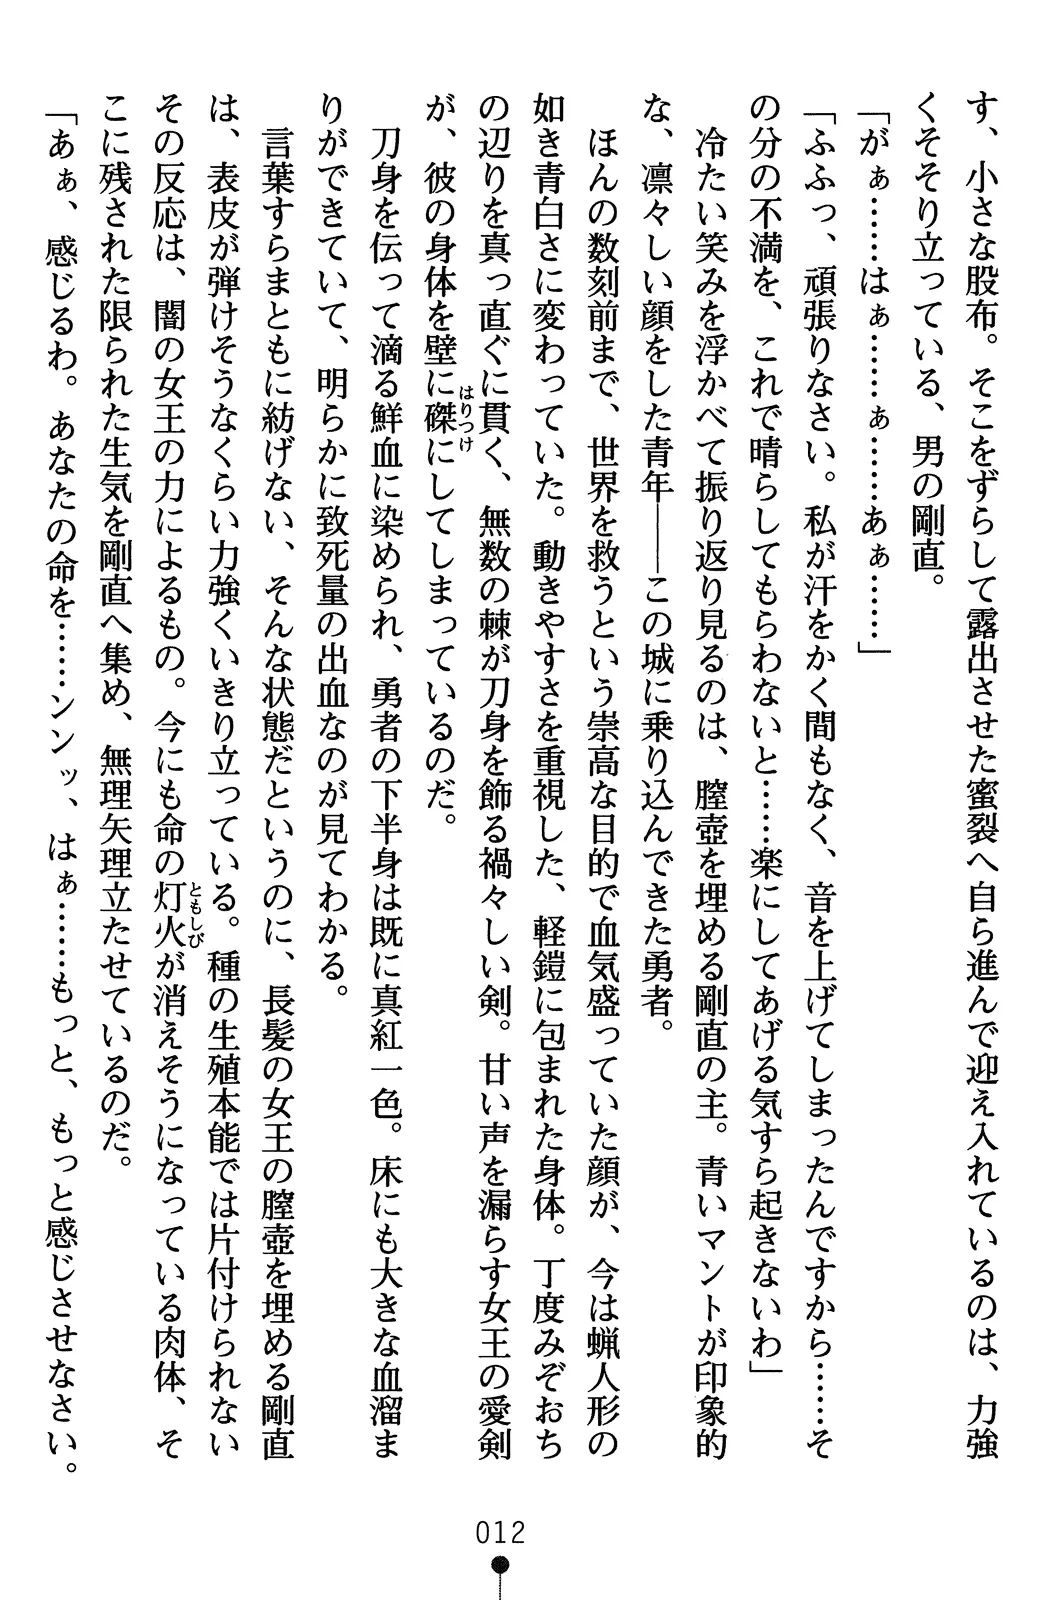 す、小さな股布。そこをずらして露出させた蜜裂へ自ら進んで迎え入れているのは、力強
くそそり立っている、男の剛直。
「がぁ……はぁ……ぁ……あぁ……」
「ふふっ、頑張りなさい。私が汗をかく間もなく、音を上げてしまったんですから……そ
の分の不満を、これで晴らしてもらわないと……楽にしてあげる気すら起きないわ」
　冷たい笑みを浮かべて振り返り見るのは、膣壺を埋める剛直の主。青いマントが印象的
な、凛々しい顔をした青年――この城に乗り込んできた勇者。
　ほんの数刻前まで、世界を救うという崇高な目的で血気盛っていた顔が、今は蝋人形の
如き青白さに変わっていた。動きやすさを重視した、軽鎧に包まれた身体。丁度みぞおち
の辺りを真っ直ぐに貫く、無数の棘が刀身を飾る禍々しい剣。甘い声を漏らす女王の愛剣
が、彼の身体を壁に磔にしてしまっているのだ。
はりつけ
　刀身を伝って滴る鮮血に染められ、勇者の下半身は既に真紅一色。床にも大きな血溜ま
りができていて、明らかに致死量の出血なのが見てわかる。
　言葉すらまともに紡げない、そんな状態だというのに、長髪の女王の膣壺を埋める剛直
は、表皮が弾けそうなくらい力強くいきり立っている。種の生殖本能では片付けられない
その反応は、闇の女王の力によるもの。今にも命の灯火が消えそうになっている肉体、そ
ともしび
こに残された限られた生気を剛直へ集め、無理矢理立たせているのだ。
「あぁ、感じるわ。あなたの命を……ンンッ、はぁ……もっと、もっと感じさせなさい。
012